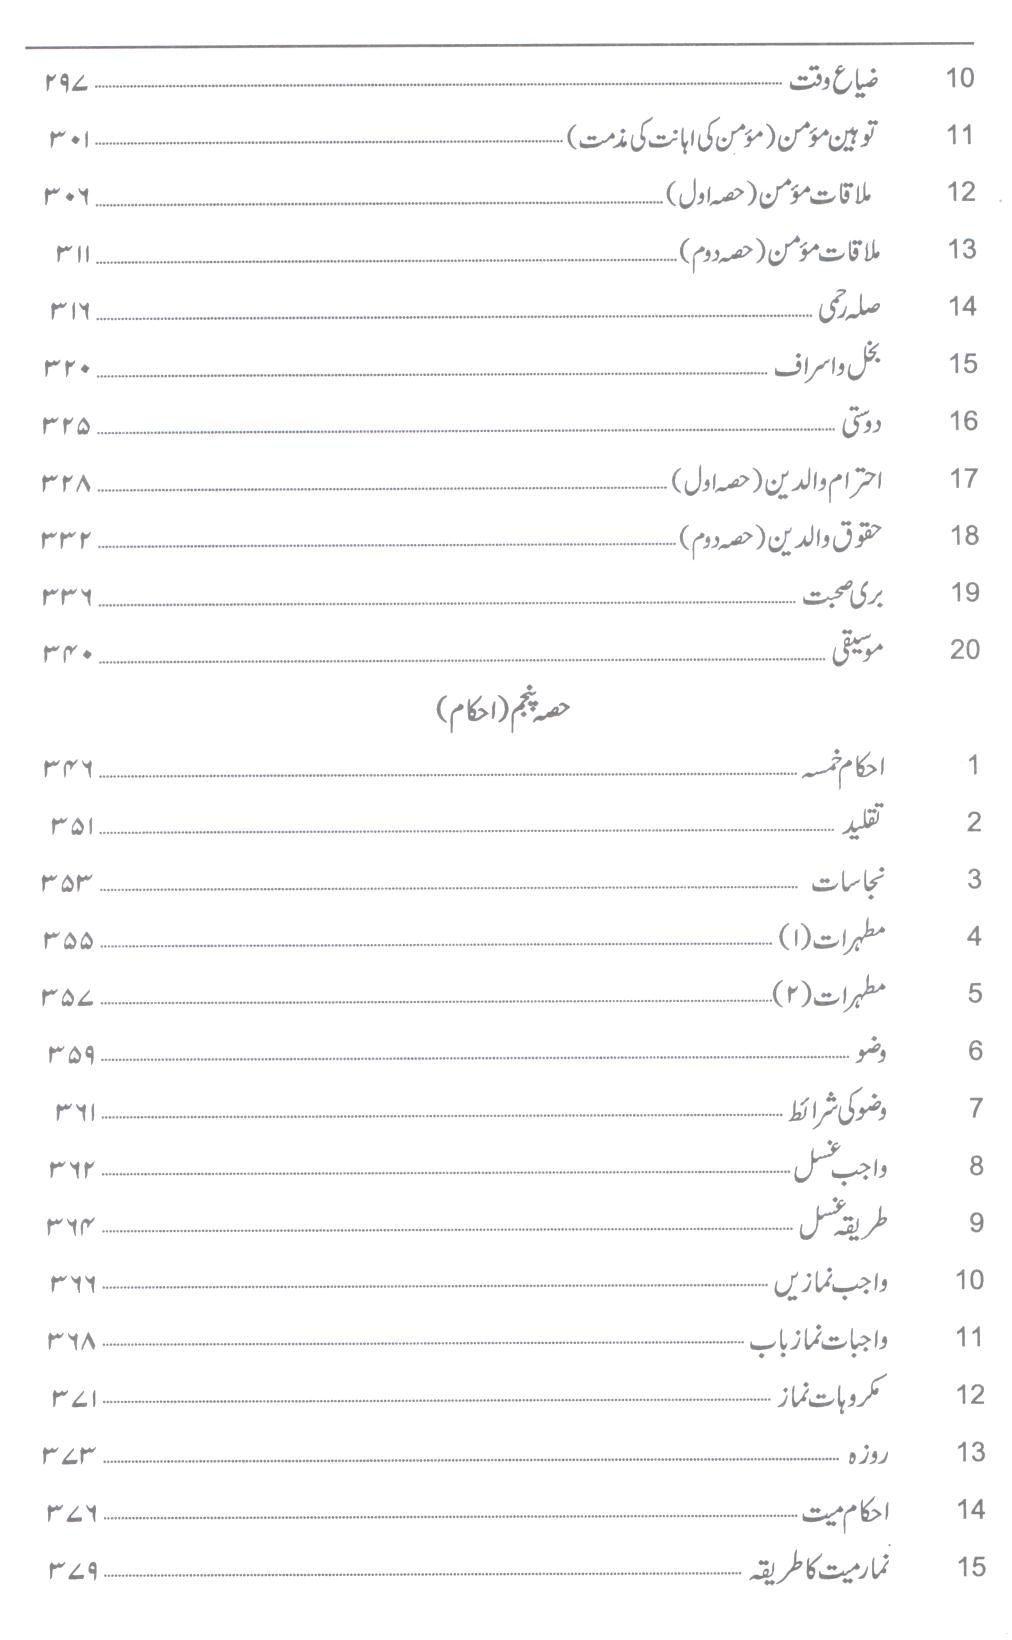 10 ضیاع وقت ۲۹۷
11 توہین مؤمن (مؤمن کی اہانت کی مذمت) ۳۰۱
12 ملاقات مؤمن (حصہ اول) ۳۰۶
13 ملاقات مؤمن (حصہ دوم) ۳۱۱
14 صلہ رحمی ۳۱۶
15 بخل و اسراف ۳۲۰
16 دوستی ۳۲۵
17 احترام والدین (حصہ اول) ۳۲۸
18 حقوق والدین (حصہ دوم) ۳۳۲
19 بری صحبت ۳۳۶
20 موسیقی ۳۴۰
حصہ پنجم (احکام)
1 احکام خمسہ ۳۴۶
2 تقلید ۳۵۱
3 نجاسات ۳۵۳
4 مطہرات (۱) ۳۵۵
5 مطہرات (۲) ۳۵۷
6 وضو ۳۵۹
7 وضو کی شرائط ۳۶۱
8 واجب غسل ۳۶۲
9 طریقہ غسل ۳۶۴
10 واجب نمازیں ۳۶۶
11 واجبات نماز باب ۳۶۸
12 مکروہات نماز ۳۷۱
13 روزہ ۳۷۳
14 احکام میت ۳۷۶
15 نمار میت کا طریقہ ۳۷۹